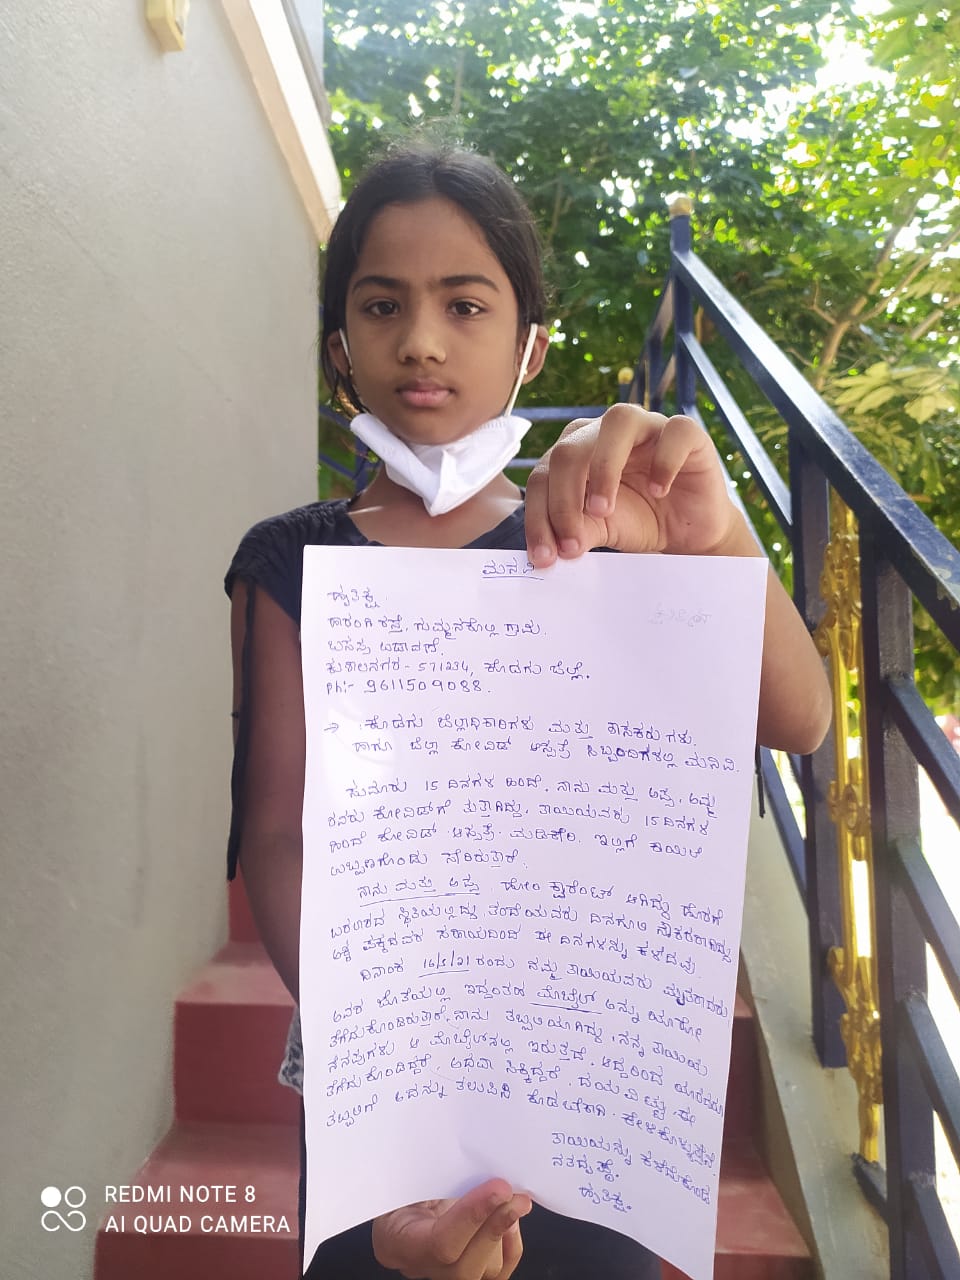 ಮನವಿ
ಹೃತಿಕ್ಷ.
ಹಾರಂಗಿ ರಸ್ತೆ, ಗುಮ್ಮನಕೊಲ್ಲಿ ಗ್ರಾಮ.
ಬಸಪ್ಪ ಬಡಾವಣೆ.
ಕುಶಾಲನಗರ - 571234, ಕೊಡಗು ಜಿಲ್ಲೆ.
Ph:- 9611509088.
→ : ಕೊಡಗು ಜಿಲ್ಲಾಧಿಕಾರಿಗಳು ಮತ್ತು ಶಾಸಕರು ಗಳು.
ಹಾಗೂ ಜಿಲ್ಲಾ ಕೋವಿಡ್ ಆಸ್ಪತ್ರೆ ಸಿಬ್ಬಂದಿಗಳಲ್ಲಿ ಮನವಿ.
ಸುಮಾರು 15 ದಿನಗಳ ಹಿಂದೆ. ನಾನು ಮತ್ತು ಅಪ್ಪ, ಅಮ್ಮ
ರವರು ಕೋವಿಡ್‌ಗೆ ತುತ್ತಾಗಿದ್ದು, ತಾಯಿಯವರು 15 ದಿನಗಳ
ಹಿಂದೆ ಕೋವಿಡ್ ಆಸ್ಪತ್ರೆ. ಮಡಿಕೇರಿ. ಇಲ್ಲಿಗೆ ಕಾಯಿಲೆ
ಉಲ್ಬಣಗೊಂಡು ಸೇರಿರುತ್ತಾರೆ.
ನಾನು ಮತ್ತು ಅಪ್ಪ. ಹೋಂ ಕ್ವಾರೆಂಟ್ ಆಗಿದ್ದು ಹೊರಗೆ
ಬರಲಾರದ ಸ್ಥಿತಿಯಲ್ಲಿದ್ದು, ತಂದೆಯವರು ದಿನಗೂಲಿ ನೌಕರರಾಗಿದ್ದು
ಅಕ್ಕ ಪಕ್ಕದವರ ಸಹಾಯದಿಂದ ಈ ದಿನಗಳನ್ನು ಕಳೆದೆವು.
ದಿನಾಂಕ 16/5/21 ರಂದು ನಮ್ಮ ತಾಯಿಯವರು ಮೃತರಾದರು
ಅವರ ಜೊತೆಯಲ್ಲಿ ಇದ್ದಂತಹ ಮೊಬೈಲ್ ಅನ್ನು ಯಾರೋ
ತೆಗೆದುಕೊಂಡಿರುತ್ತಾರೆ. ನಾನು ತಬ್ಬಲಿಯಾಗಿದ್ದು, ನನ್ನ ತಾಯಿಯ
ನೆನಪುಗಳು ಆ ಮೊಬೈಲ್‌ನಲ್ಲಿ ಇರುತ್ತದೆ. ಆದ್ದರಿಂದ ಯಾರಾದರೂ
ತೆಗೆದುಕೊಂಡಿದ್ದರೆ, ಅಥವಾ ಸಿಕ್ಕಿದ್ದರೆ. ದಯವಿಟ್ಟು ಈ
ತಬ್ಬಲಿಗೆ ಅದನ್ನು ತಲುಪಿಸಿ ಕೊಡಬೇಕಾಗಿ. ಕೇಳಿಕೊಳ್ಳುತ್ತೇನೆ.
ತಾಯಿಯನ್ನು ಕಳೆದುಕೊಂಡ
ನತದೃಷ್ಟೆ.
ಹೃತಿಕ್ಷ.
REDMI NOTE 8
AI QUAD CAMERA